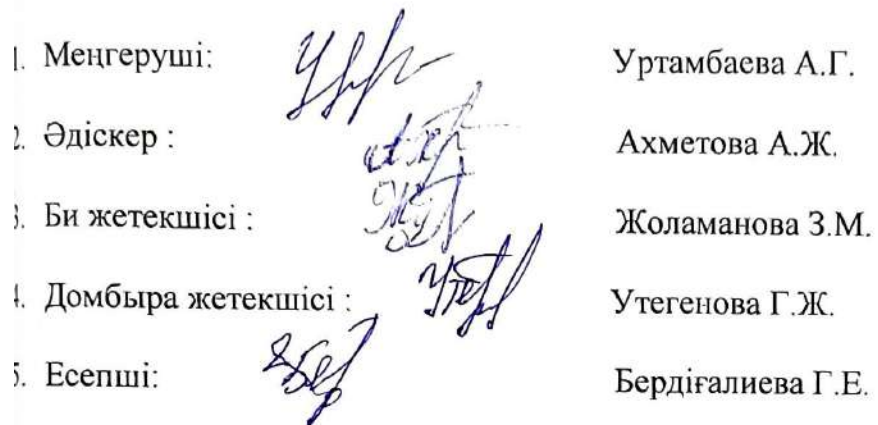 1. Меңгеруші: Уртамбаева А.Г.
2. Әдіскер : Ахметова А.Ж.
3. Би жетекшісі : Жоламанова З.М.
4. Домбыра жетекшісі : Утегенова Г.Ж.
5. Есепші: Бердіғалиева Г.Е.